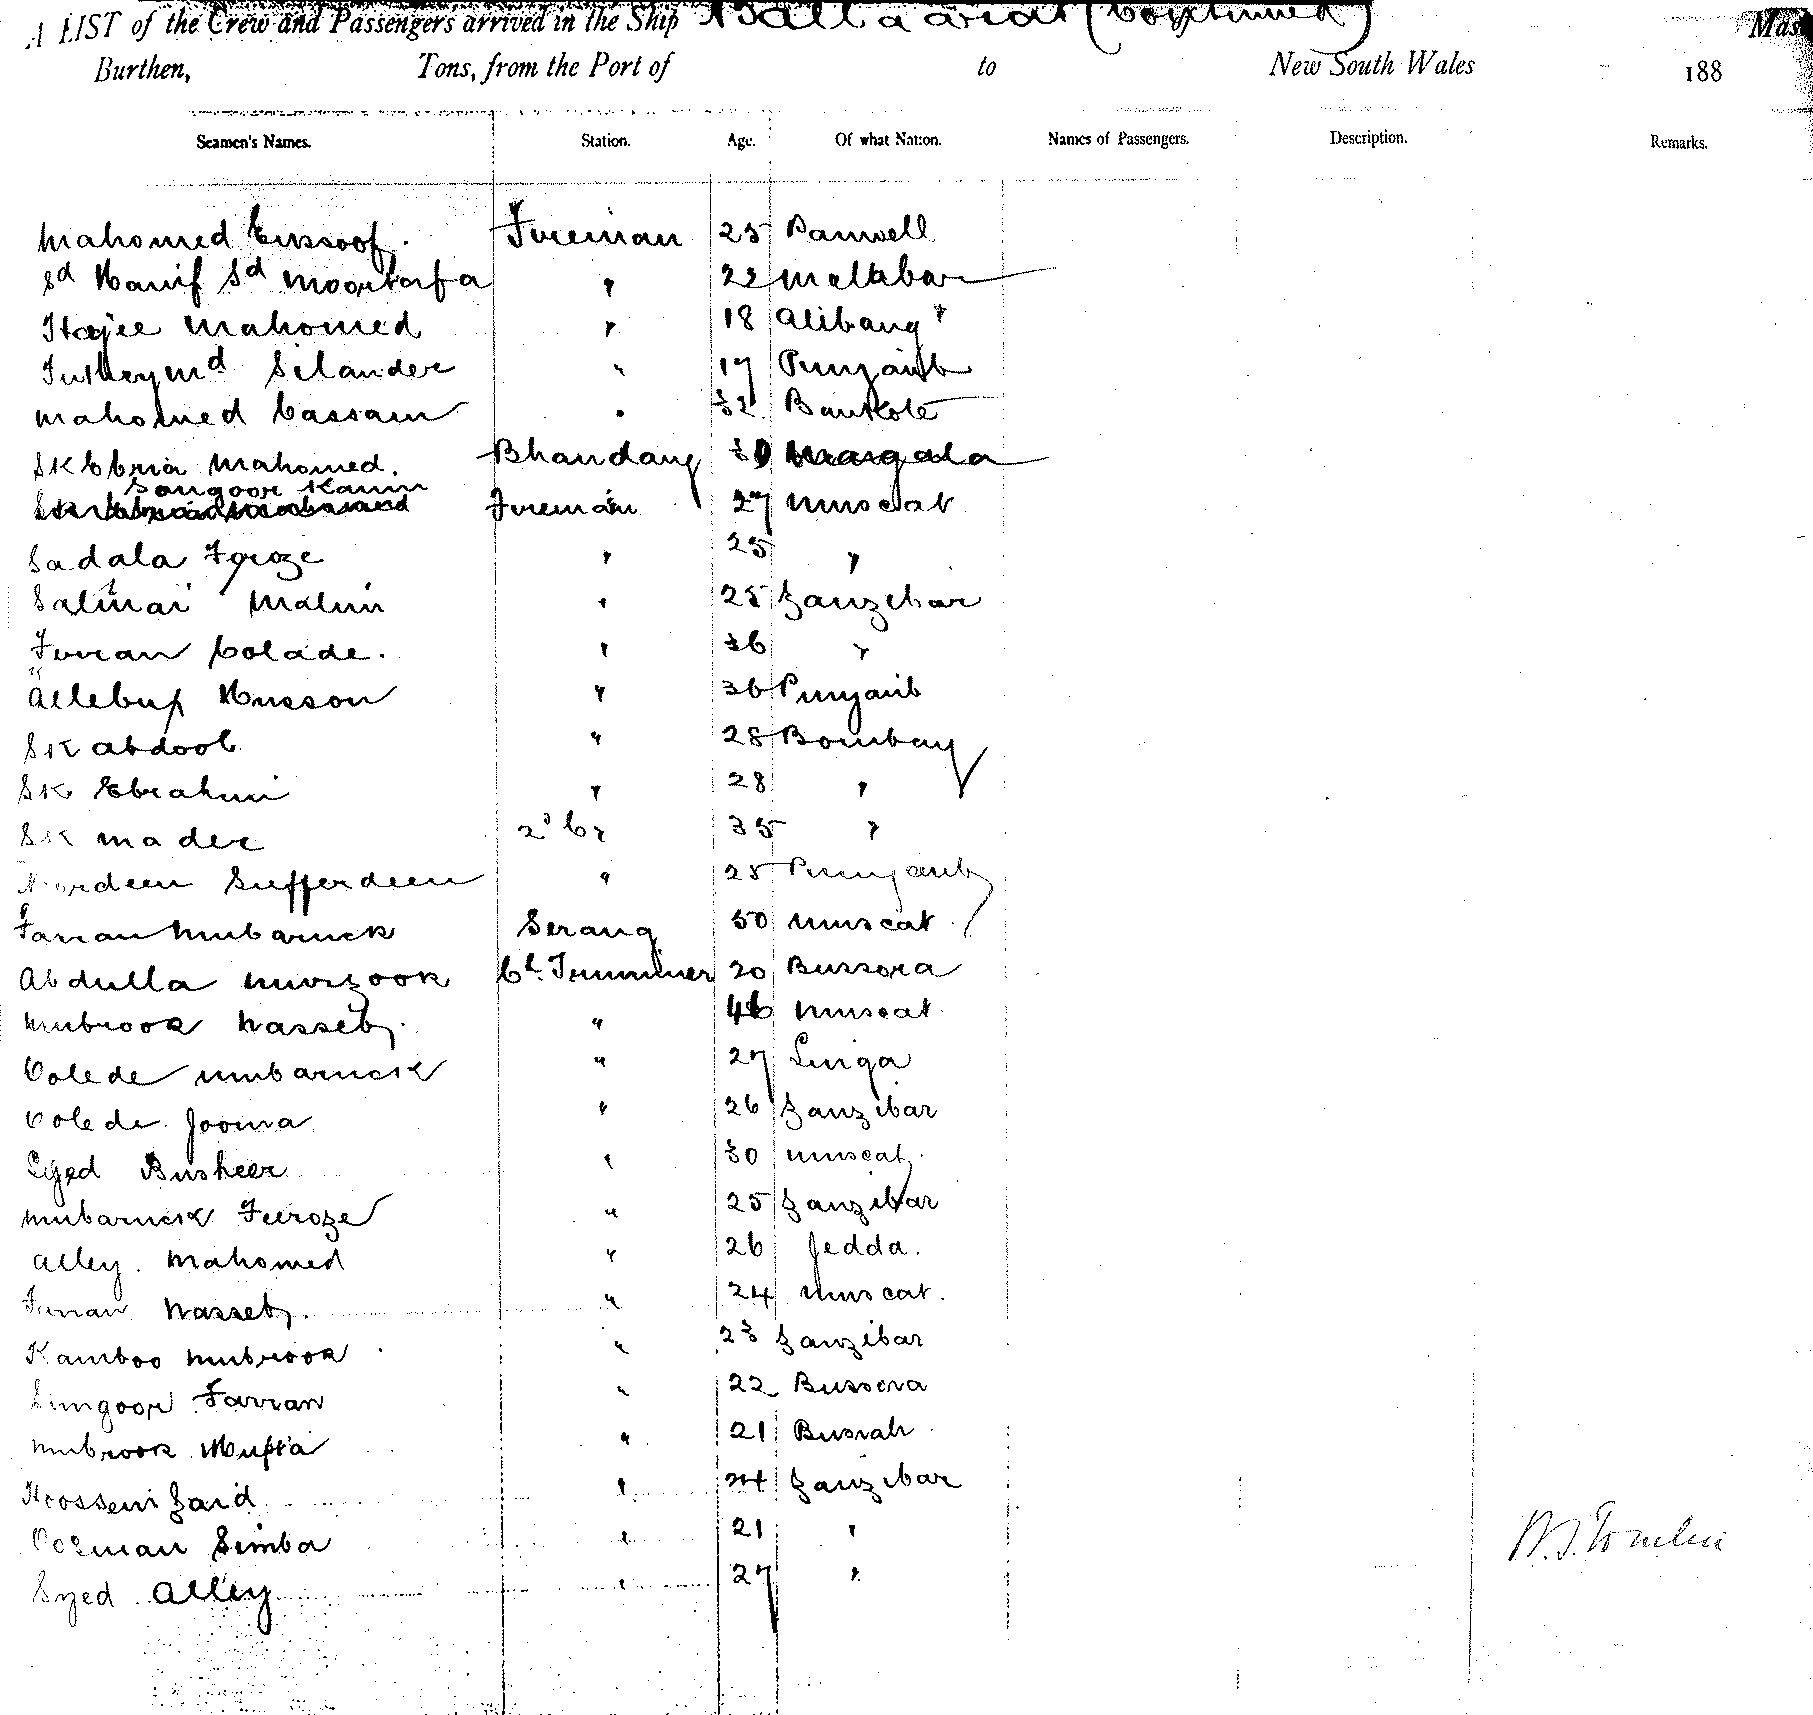 A LIST of the Crew and Passengers arrived in the Ship Ballaarat (Continued) Mas
Burthen, Tons, from the Port of to New South Wales 188
Seamen's Names. Station. Age. Of what Nation. Names of Passengers. Description. Remarks.
Mahomed Eussoof. Fireman 25 Panwell
Sd Hanif Sd Moortafa " 22 Mallabar
Hajee Mahomed " 18 Alibang
Md Silander " 17 Punjaub
Mahomed Cassam " 32 Bankote
SK Ebria Mahomed. Bhandary 30 Mangala
Songoor Kamm Fireman 27 Muscat
Sadala Feroze " 25 "
Salmai Malim " 25 Zanzibar
Ferran Colade. " 36 "
Allebux Husson " 36 Punjaub
SK Abdool " 28 Bombay
SK Ebrahim " 28 "
SK Mader 2d Cr 35 "
Noordeen Sufferdeen " 25 Punjaub
Farran Mubaruck Serang 50 Muscat
Abdulla Murzook Cl. Trimmer 20 Bussora
Mubrook Nasseeb. " 46 Muscat
Colede Mubaruck " 27 Linga
Colede Jooma " 26 Zanzibar
Syed Busheer " 30 Muscat
Mubaruck Feeroze " 25 Zanzibar
Alley Mahomed " 26 Jedda.
Farran Nasseb. " 24 Muscat.
Kamboo Mubrook " 23 Zanzibar
Sungoor Farran " 22 Bussora
Mubrook Mufta " 21 Busrah
Hoossein Zaid " 24 Zanzibar
Oosman Simba " 21 "
Syed Alley " 27 "
W.J. Tomlin